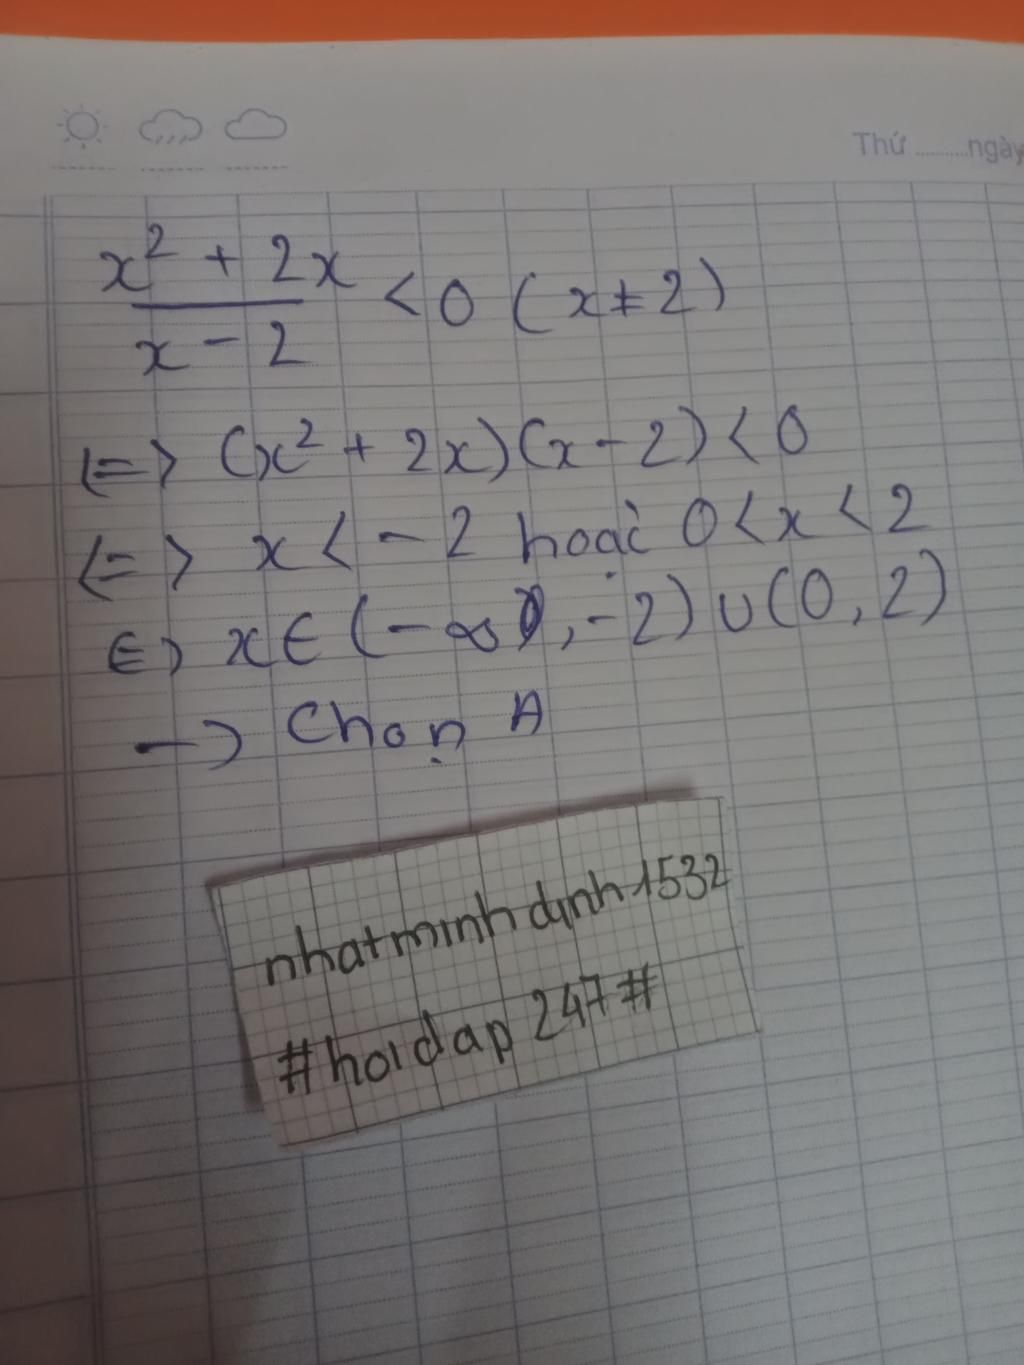 Thứ ........ngày
x² + 2x / x - 2 < 0 (x ≠ 2)
<=> (x² + 2x)(x - 2) < 0
<=> x < -2 hoặc 0 < x < 2
<=> x ∈ (-∞, -2) ∪ (0, 2)
-> Chọn A
nhatminhdinh1532
#hoidap247#